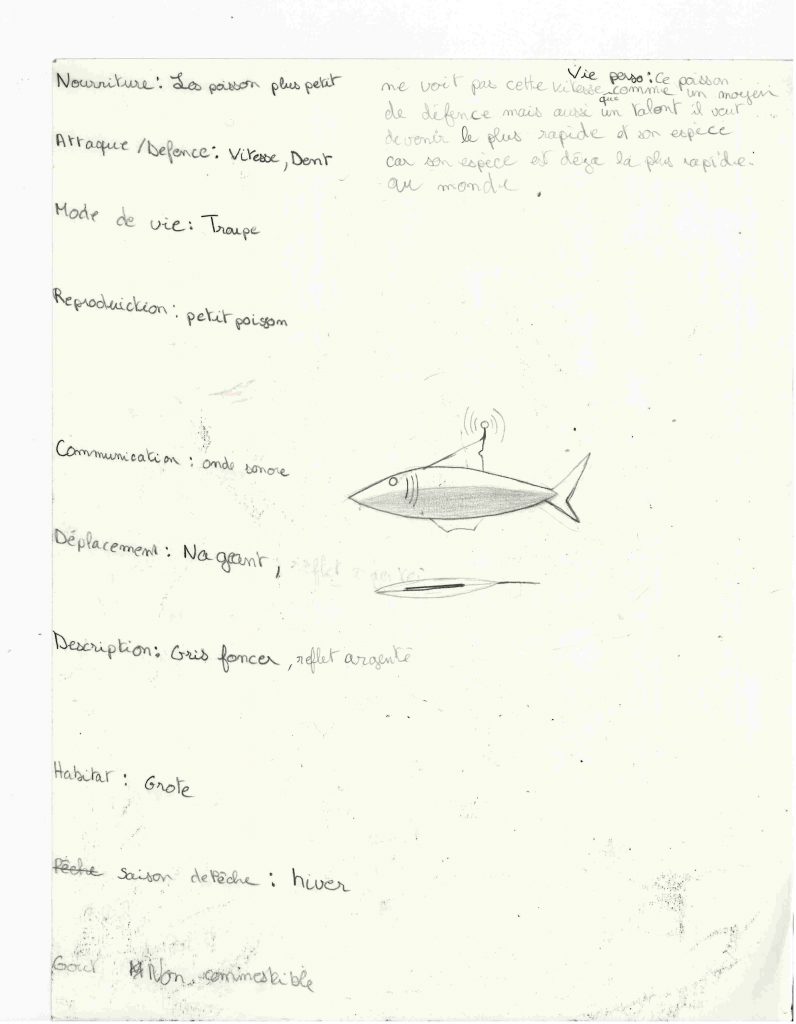 Nourriture: Les poisson plus petit
Attaque /Defence: Vitesse, Dent
Mode de vie: Troupe
Reproduiction: petit poisson
Communication: onde sonore
Déplacement: Nageant, reflet argenté
Description: Gris foncer, reflet argenté
Habitat: Grote
Pêche saison de Pêche: hiver
Gout Non commestible
Vie perso: Ce poisson
ne voit pas cette vitesse comme un moyen
que
de défence mais aussi un talont il veut
devenir le plus rapide d son espèce
car son espece est déga la plus rapide.
au monde.